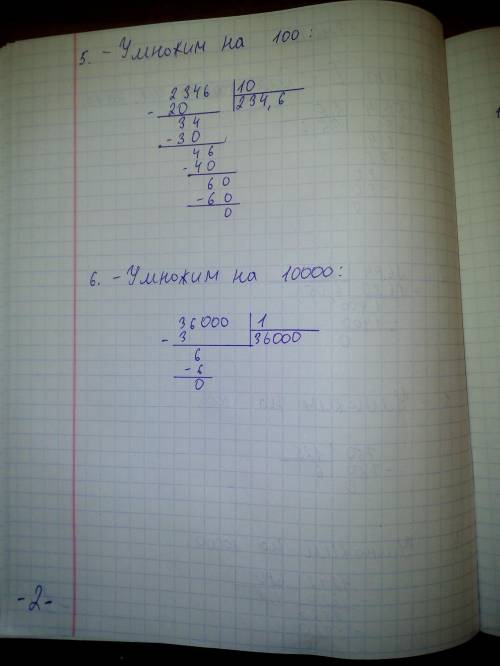 5. - Умножим на 100:
2346 | 10
- 20 | 234,6
34
- 30
46
- 40
60
- 60
0
6. - Умножим на 10000:
36000 | 1
- 3 | 36000
6
- 6
0
-2-